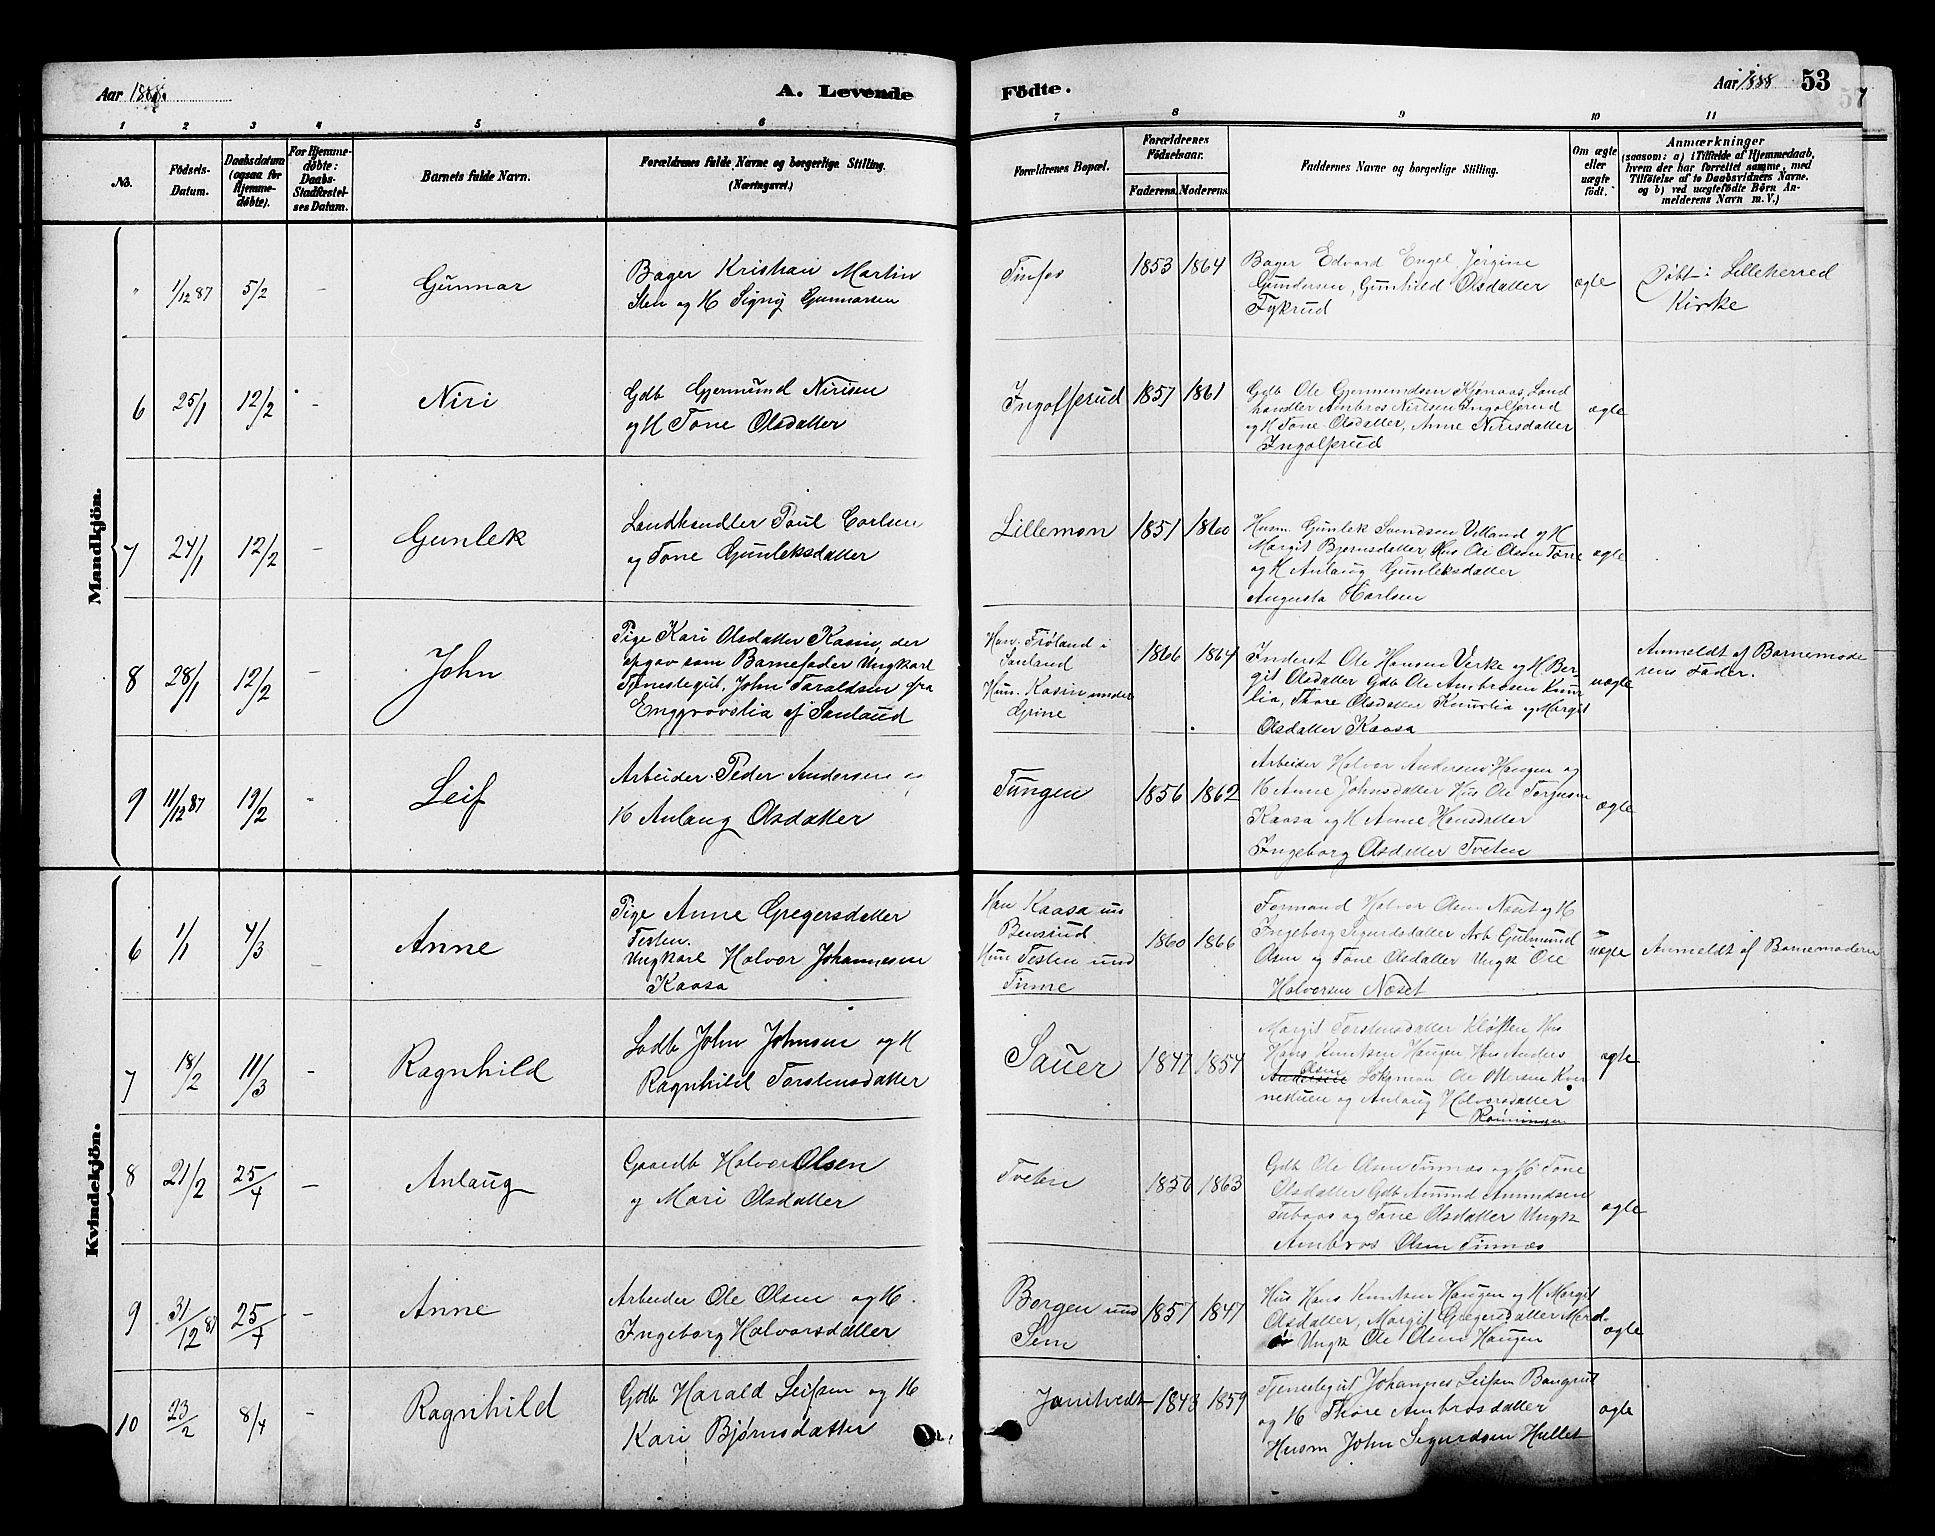 Aar 1888.
A. Levende
Fødte.
Aar 1888
53
57
1 2 3 4 5 6 7 8 9 10 11
No.
Fødsels-
Datum.
Daabsdatum
(ogsaa for
Hjemme-
døbte).
For Hjemme-
døbte:
Daabs-
Stadfæstel-
ses Datum.
Barnets fulde Navn.
Forældrenes fulde Navne og borgerlige Stilling.
(Næringsvei.)
Forældrenes Bopæl.
Forældrenes
Fødselsaar.
Faderens. Moderens.
Faddernes Navne og borgerlige Stilling.
Om ægte
eller
uægte
født.
Anmærkninger
(saasom: a) i Tilfælde af Hjemmedaab,
hvem der har forrettet samme, med
Tilføielse af to Daabsvidners Navne.
og b) ved uægtefødte Børn An-
melderens Navn m. V.)
Mandkjøn.
" 1/12 87 5/2 - Gunnar
Bager Kristian Martin
Sten og K Signy Gunnarsen
Tinfos
1853 1864
Bager Edvard Engel Jørgine
Gundersen, Gunhild Olsdatter
Fykrud
ægte
Døbt i Lilleherred
Kirke
6 25/1 12/2 - Niri
Gdb Gjermund Nirisen
og K Tone Olsdatter
Ingolfsrud
1857 1861
Gdb Ole Gjermundsen Kjønaas, Land
handler Ambros Nirisen Ingolfsrud
og K Tone Olsdatter, Anne Nirisdatter
Ingolfsrud
ægte
7 24/1 12/2 - Gunlek
Landhandler Poul Carlsen
og Tone Gunleksdatter
Lillemon
1851 1860
Husm Gunlek Svendsen Villand og K
Margit Bjørnsdatter Hus Ole Olsen Tone
og K Anlaug Gunleksdatter
Augusta Karlsen
ægte
8 28/1 12/2 - John
Pige Kari Olsdatter Kasin, der
opgav som Barnefader Ungkarl
Tjenestegut, John Taraldsen fra
Enggrovslia af Sauland
Han. Frøland i
Sauland
Hun. Kasin under
Grine
1866 1864
Inderst Ole Hansen Verke og K Ber-
git Olsdatter Gdb Ole Ambrosen Knur
lia, Thore Olsdatter Knurlia og Margit
Olsdatter Kaasa
uægte
Anmeldt af Barnemode
rens Fader.
9 11/12 87 19/2 - Leif
Arbeider Peder Andersen og
K Anlaug Olsdatter
Tungen
1856 1862
Arbeider Halvor Andersen Haugen og
K Anne Johnsdatter Hus Ole Torgusen
Kaasa og K Anne Hansdatter
Ingeborg Olsdatter Tveten
ægte
Kvindekjøn.
6 1/1 4/3 - Anne
Pige Anne Gregersdatter
Testen.
Ungkarl Halvor Johannesen
Kaasa
Han Kaasa un
Bensrud
Hun Testen und
Tinne
1860 1866
Formand Halvor Olsen Næset og K
Ingeborg Sigurdsdatter Arb Gulmund
Olsen og Tone Olsdatter Ungk Ole
Halvorsen Næset
uægte
Anmeldt af Barnemodern
7 18/2 11/3 - Ragnhild
Gdb John Johnsen og K
Ragnhild Torstensdatter
Sauer
1847 1854
Margit Torstensdatter Kløften Hus
Hans Knutsen Haugen Hus Anders
Olsen
Andersen Ole Olsen Kver
nekuen og Anlaug Halvorsdatter
Rønningen
ægte
8 21/2 25/4 - Anlaug
Gaardb Halvor Olsen
og Mari Olsdatter
Tveten
1856 1863
Gdb Ole Olsen Tinnæs og K Tone
Olsdatter Gdb Amund Amundsen
og Tone Olsdatter Ungk
Ambros Olsen Tinnæs
ægte
9 31/12 87 25/4 - Anne
Arbeider Ole Olsen og K.
Ingeborg Halvorsdatter
Borgen und
Sem
1857 1847
Hus Hans Knutsen Haugen og K Margit
Olsdatter, Margit Gregersdatter
Ungk Ole Olsen Haugen
ægte
10 23/2 8/4 - Ragnhild
Gdb Harald Leifsen og K
Kari Bjørnsdatter
Jamtvedt
1848 1859
Tjenestegut Johannes Leifsen Bangrud
og K Thore Ambrosdatter
Husm John Sigurdsen Hullet
ægte